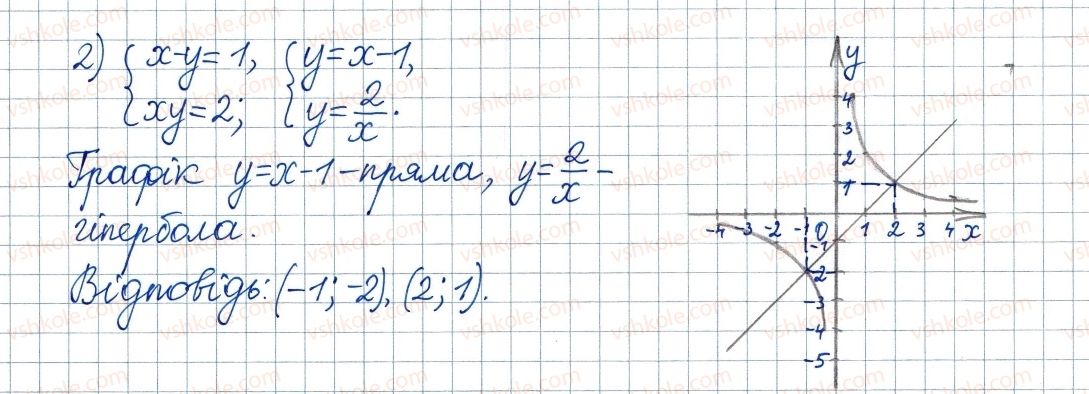 2) { x-y=1, { y=x-1,
{ xy=2; { y=2/x.
Графік y=x-1 - пряма, y=2/x -
гіпербола.
Відповідь: (-1; -2), (2; 1).
y
4
3
2
1
-4 -3 -2 -1 0 1 2 3 4 x
-1
-2
-3
-4
-5
vshkole.com